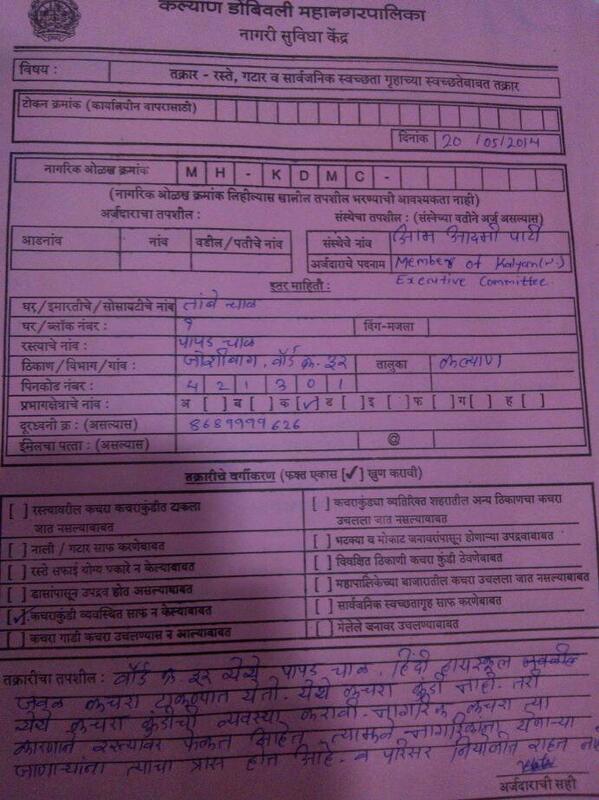 कल्याण डोंबिवली महानगरपालिका
नागरी सुविधा केंद्र
विषय : तक्रार - रस्ते, गटार व सार्वजनिक स्वच्छता गृहाच्या स्वच्छतेबाबत तक्रार
टोकन क्रमांक (कार्यालयीन वापरासाठी)
दिनांक 20/05/2014
नागरिक ओळख क्रमांक MH-KDMC-
(नागरिक ओळख क्रमांक लिहील्यास खालील तपशील भरण्याची आवश्यकता नाही)
अर्जदाराचा तपशील : संस्थेचा तपशील : (संस्थेच्या वतीने अर्ज असल्यास)
आडनांव नांव वडील/पतीचे नांव संस्थेचे नांव आम आदमी पार्टी
अर्जदाराचे पदनाम Member of Kalyan(w.)
Executive Committee
इतर माहिती :
घर/इमारतीचे/सोसायटीचे नांव तांबे चाळ
घर/ब्लॉक नंबर : १ विंग-मजला
रस्त्याचे नांव : पापड चाळ
ठिकाण/विभाग/गांव : जोशीबाग, वॉर्ड क्र. ३२ तालुका कल्याण
पिनकोड नंबर : 421301
प्रभागक्षेत्राचे नांव : अ [ ] ब [ ] क [✓] ड [ ] इ [ ] फ [ ] ग [ ] ह [ ]
दूरध्वनी क्र : (असल्यास) 8689999626
ईमेलचा पत्ता : (असल्यास) @
तक्रारीचे वर्गीकरण (फक्त एकास [✓] खुण करावी)
[ ] रस्त्यावरील कचरा कचराकुंडीत टाकला जात नसल्याबाबत
[ ] नाली / गटार साफ करणेबाबत
[ ] रस्ते सफाई योग्य प्रकारे न केल्याबाबत
[ ] डासांपासून उपद्रव होत असल्याबाबत
[✓] कचराकुंडी व्यवस्थित साफ न केल्याबाबत
[ ] कचरा गाडी कचरा उचलण्यास न आल्याबाबत
[ ] कचराकुंड्या व्यतिरिक्त शहरातील अन्य ठिकाणचा कचरा उचलला जात नसल्याबाबत
[ ] भटक्या व मोकाट जनावरांपासून होणाऱ्या उपद्रवाबाबत
[ ] विवक्षित ठिकाणी कचरा कुंडी ठेवणेबाबत
[ ] महापालिकेच्या बाजारातील कचरा उचलला जात नसल्याबाबत
[ ] सार्वजनिक स्वच्छतागृह साफ करणेबाबत
[ ] मेलेले जनावर उचलण्याबाबत
तक्रारीचा तपशील : वॉर्ड क्र. ३२ येथे पापड चाळ, हिंदी हायस्कूल
जवळ कचरा टाकण्यात येतो. येथे कचरा कुंडी नाही. तरी
येथे कचरा कुंडीची व्यवस्था करावी. नागरिक कचरा त्या
कारणाने रस्त्यावर फेकत आहेत. त्यामुळे नागरिकांना येणाऱ्या
जाणाऱ्यांना त्याचा त्रास होत आहे. व परिसर राहत
अर्जदाराची सही